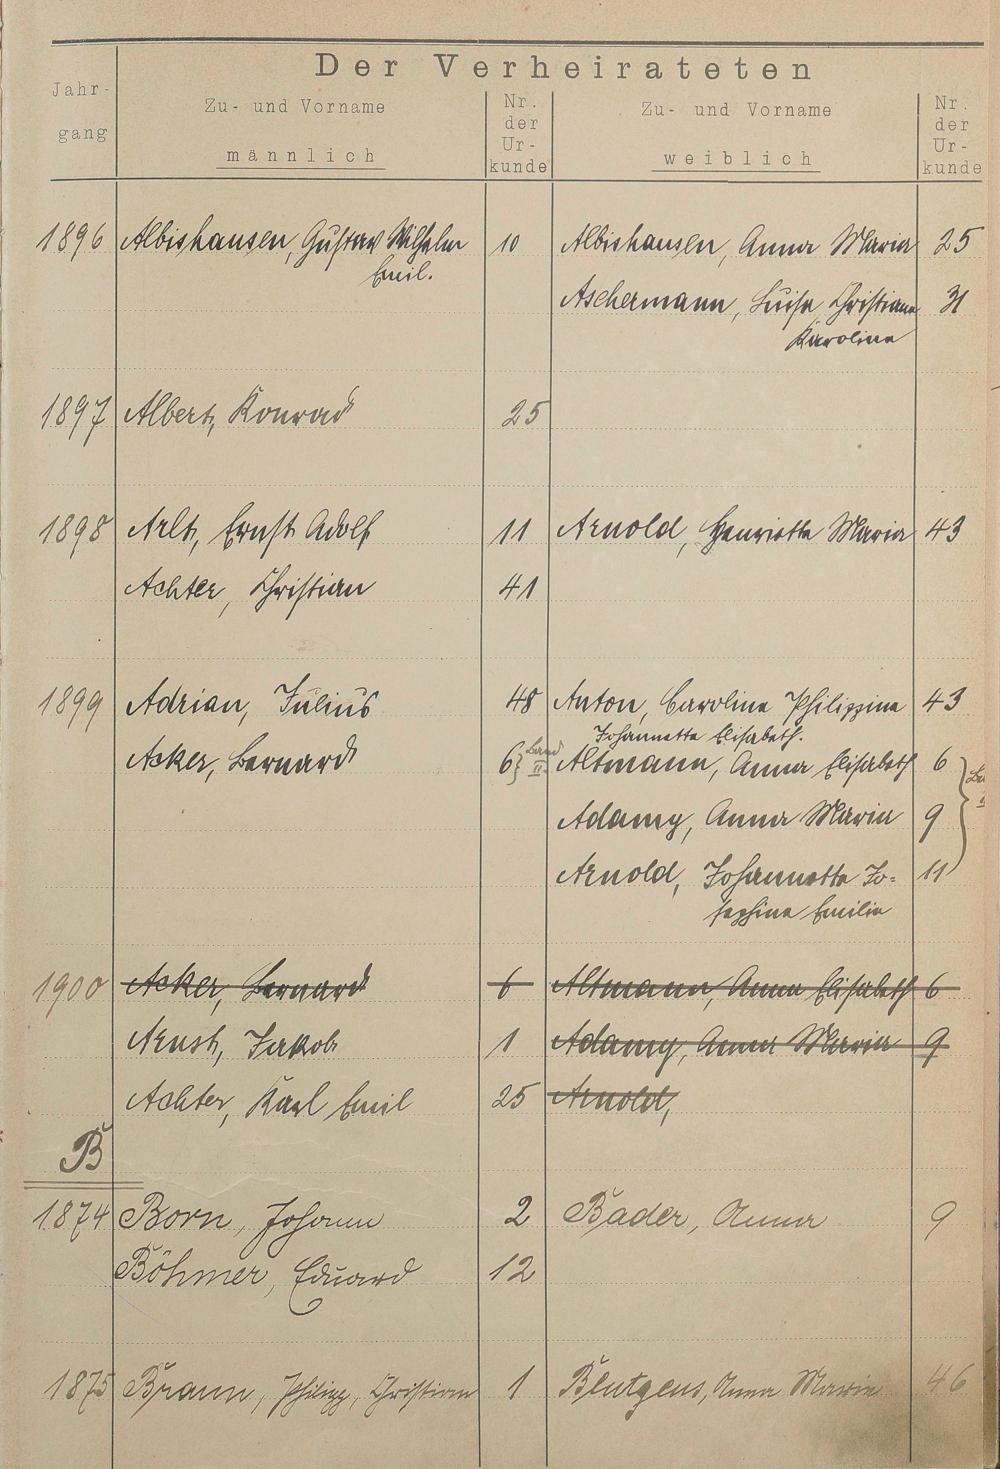 Der Verheirateten
Jahr-
gang
Zu- und Vorname
männlich
Nr.
der
Ur-
kunde
Zu- und Vorname
weiblich
Nr.
der
Ur-
kunde
1896 Albishausen, Gustav Wilhelm 10 Albishausen, Anna Maria 25
Emil.
Aschermann, Luise Christiane 31
Karoline
1897 Albert, Konrad 25
1898 Arlt, Ernst Adolf 11 Arnold, Henriette Maria 43
Achter, Christian 41
1899 Adrian, Julius 48 Anton, Caroline Philippine 43
Johannette Elisabeth.
Acker, Bernard 6 } Band II. Altmann, Anna Elisabeth 6
Adamy, Anna Maria 9
Arnold, Johannette Jo= 11
sephine Emilie
1900 Acker, Bernard 6 Altmann, Anna Elisabeth 6
Arnst, Jakob 1 Adamy, Anna Maria 9
Achter, Karl Emil 25 Arnold,
B
1874 Born, Johann 2 Bader, Anna 9
Böhmer, Eduard 12
1875 Braun, Philipp, Christian 1 Blutgens, Anna Maria 46